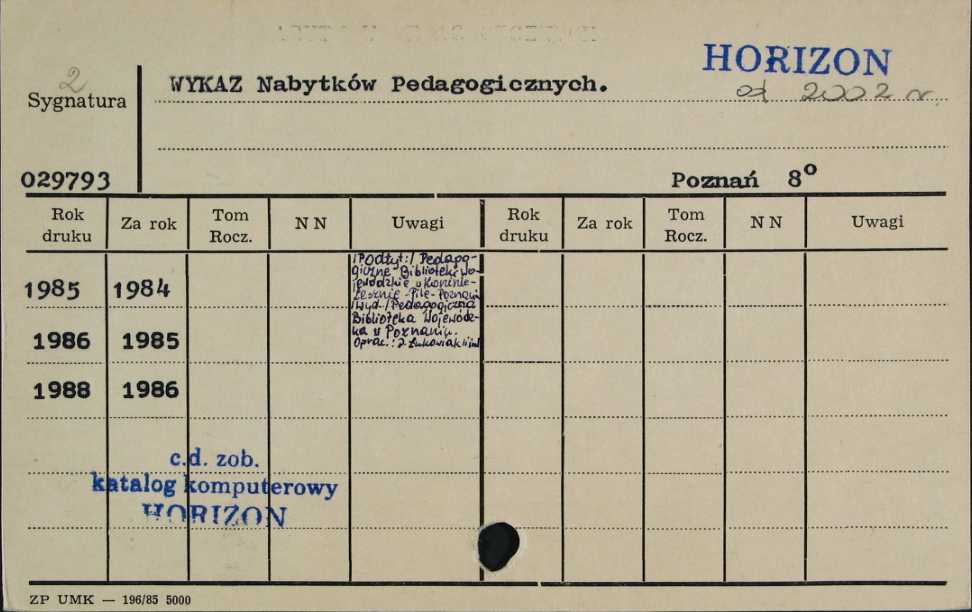 HORIZON
2
WYKAZ Nabytków Pedagogicznych.
od 2002 r.
Sygnatura
029793
Poznań 8º
Rok druku Za rok Tom Rocz. N N Uwagi Rok druku Za rok Tom Rocz. N N Uwagi
/Podtyt:/ Pedago-
giczne Biblioteki Wo-
jewódzkie w Koninie-
Lesznie - Pile - Poznaniu
/Wyd./ Pedagogiczna
Biblioteka Wojewódz-
ka w Poznaniu.
Oprac.: J. Łukowiak i in
1985 1984
1986 1985
1988 1986
c.d. zob.
katalog komputerowy
HORIZON
ZP UMK — 196/85 5000